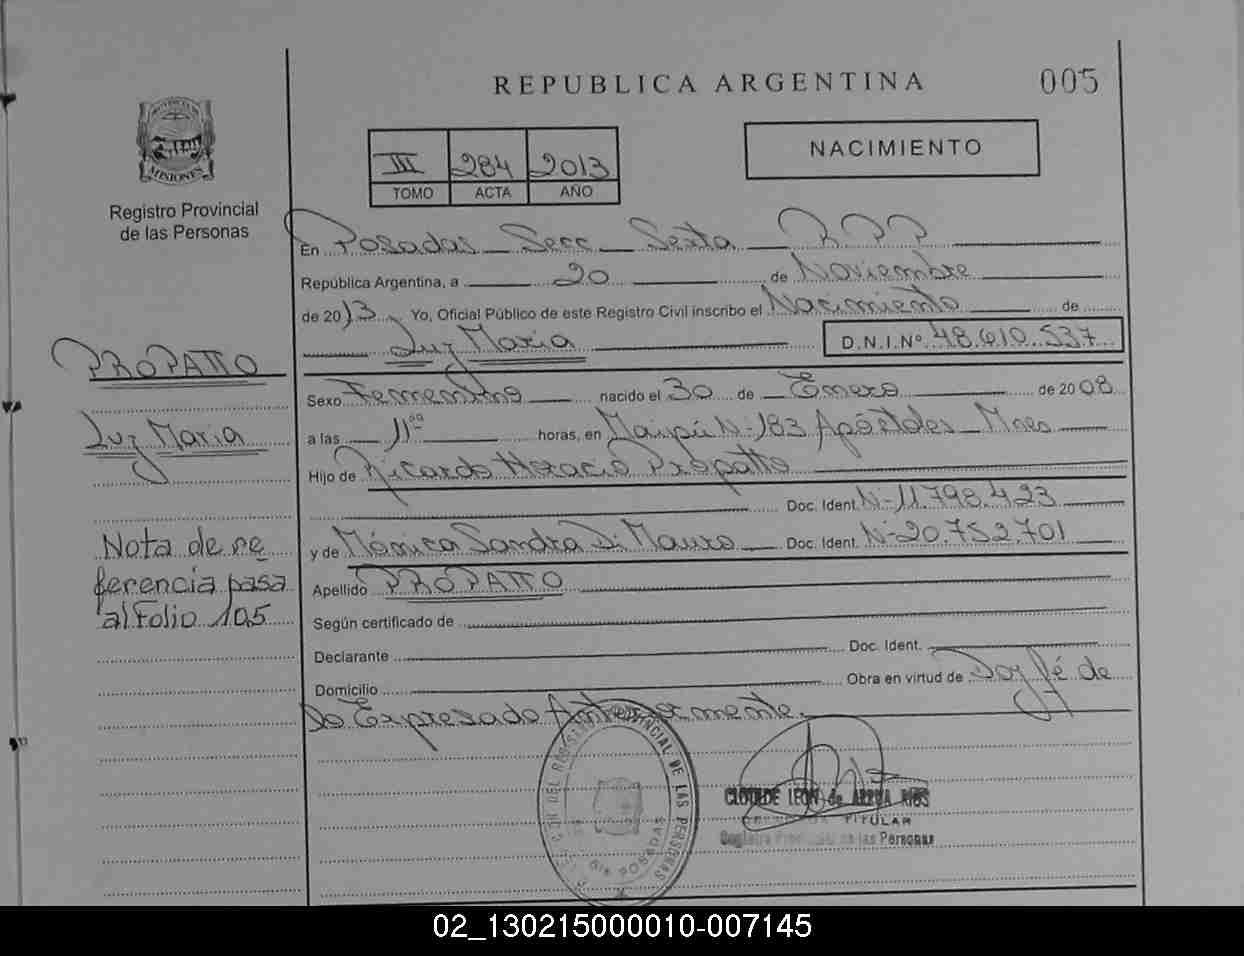 REPUBLICA ARGENTINA
005
MISIONES
Registro Provincial
de las Personas
III 284 2013
TOMO ACTA AÑO
NACIMIENTO
En Posadas Secc. Sexta R P P
República Argentina, a 20 de Noviembre
de 2013 Yo, Oficial Público de este Registro Civil inscribo el Nacimiento de
Luz Maria D.N.I.Nº 48.610.537
PROPATTO
Luz Maria
Nota de re
ferencia pasa
al Folio 105
Sexo Femenino nacido el 30 de Enero de 2008
a las 11 horas, en Maipú N-183 Apóstoles Mnes
Hijo de Ricardo Horacio Propatto
Doc. Ident. N-11.798.423
y de Mónica Sandra Di Mauro Doc. Ident. N-20.752.701
Apellido PROPATTO
Según certificado de
Declarante Doc. Ident.
Domicilio Obra en virtud de Doy fé de
lo Expresado Anteriormente.
PROVINCIAL DE LAS PERSONAS
POSADAS
CLOTILDE LEON de ARZUA RIOS
TITULAR
Registro Provincial de las Personas
02_130215000010-007145